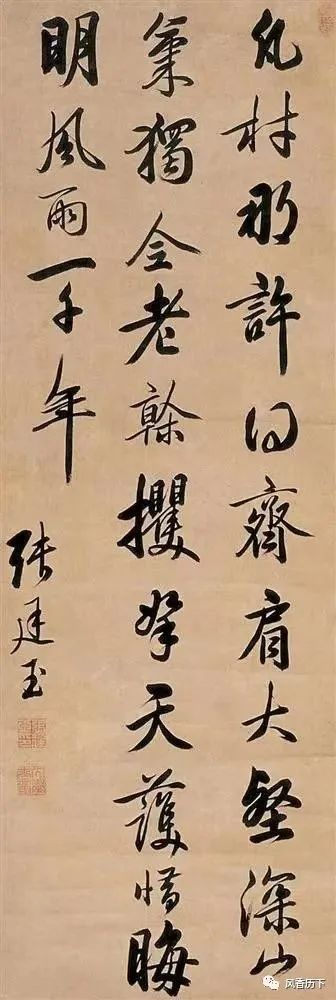 凡材那許得齊肩大壑深山
氣獨全老榦攫拏天護惜晦
明風雨一千年
張廷玉
风香历下